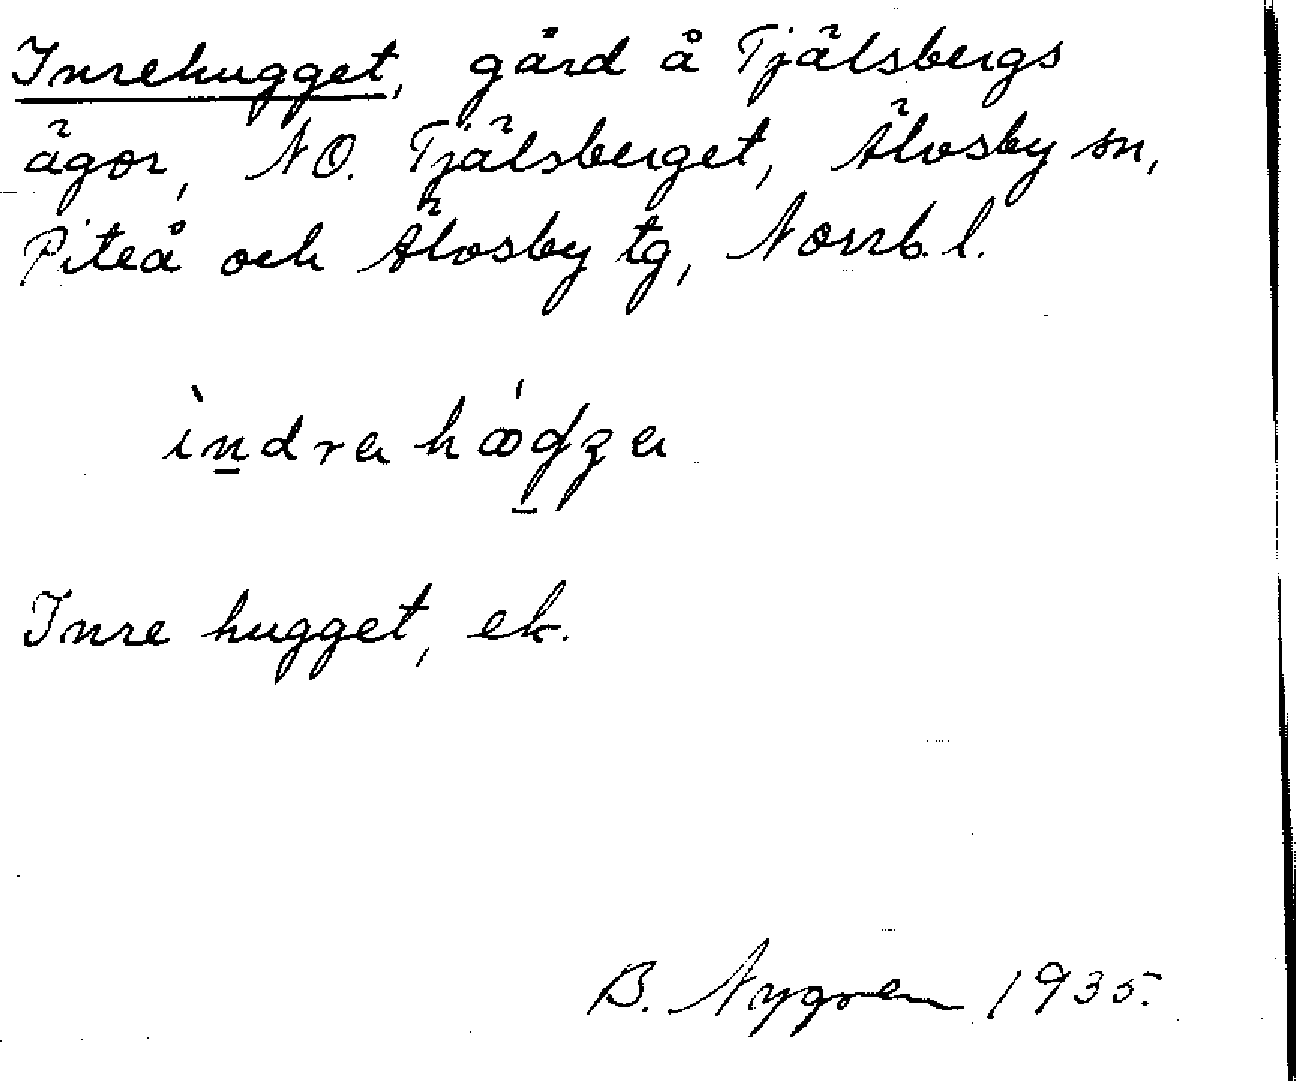 Inrehugget, gård å Tjälsbergs
ägor, NO. Tjälsberget, Älvsby sn,
Piteå och Älvsby tg, Norrb. l.
Inre hugget, ek.
B. Nygren 1935.